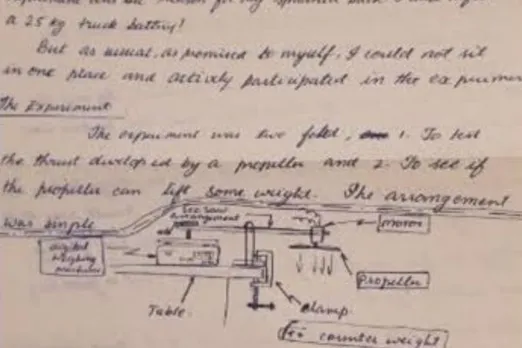 a 25 kg truck battery!
But as usual, as promised to myself, I could not sit
in one place and actively participated in the experiment
The Experiment
The experiment was two fold, 1. To test
the thrust developed by a propeller and 2. To see if
the propeller can lift some weight. The arrangement
was simple
See saw
arrangement
motor
digital
weighing
machine
propeller
Table
clamp
counter weight